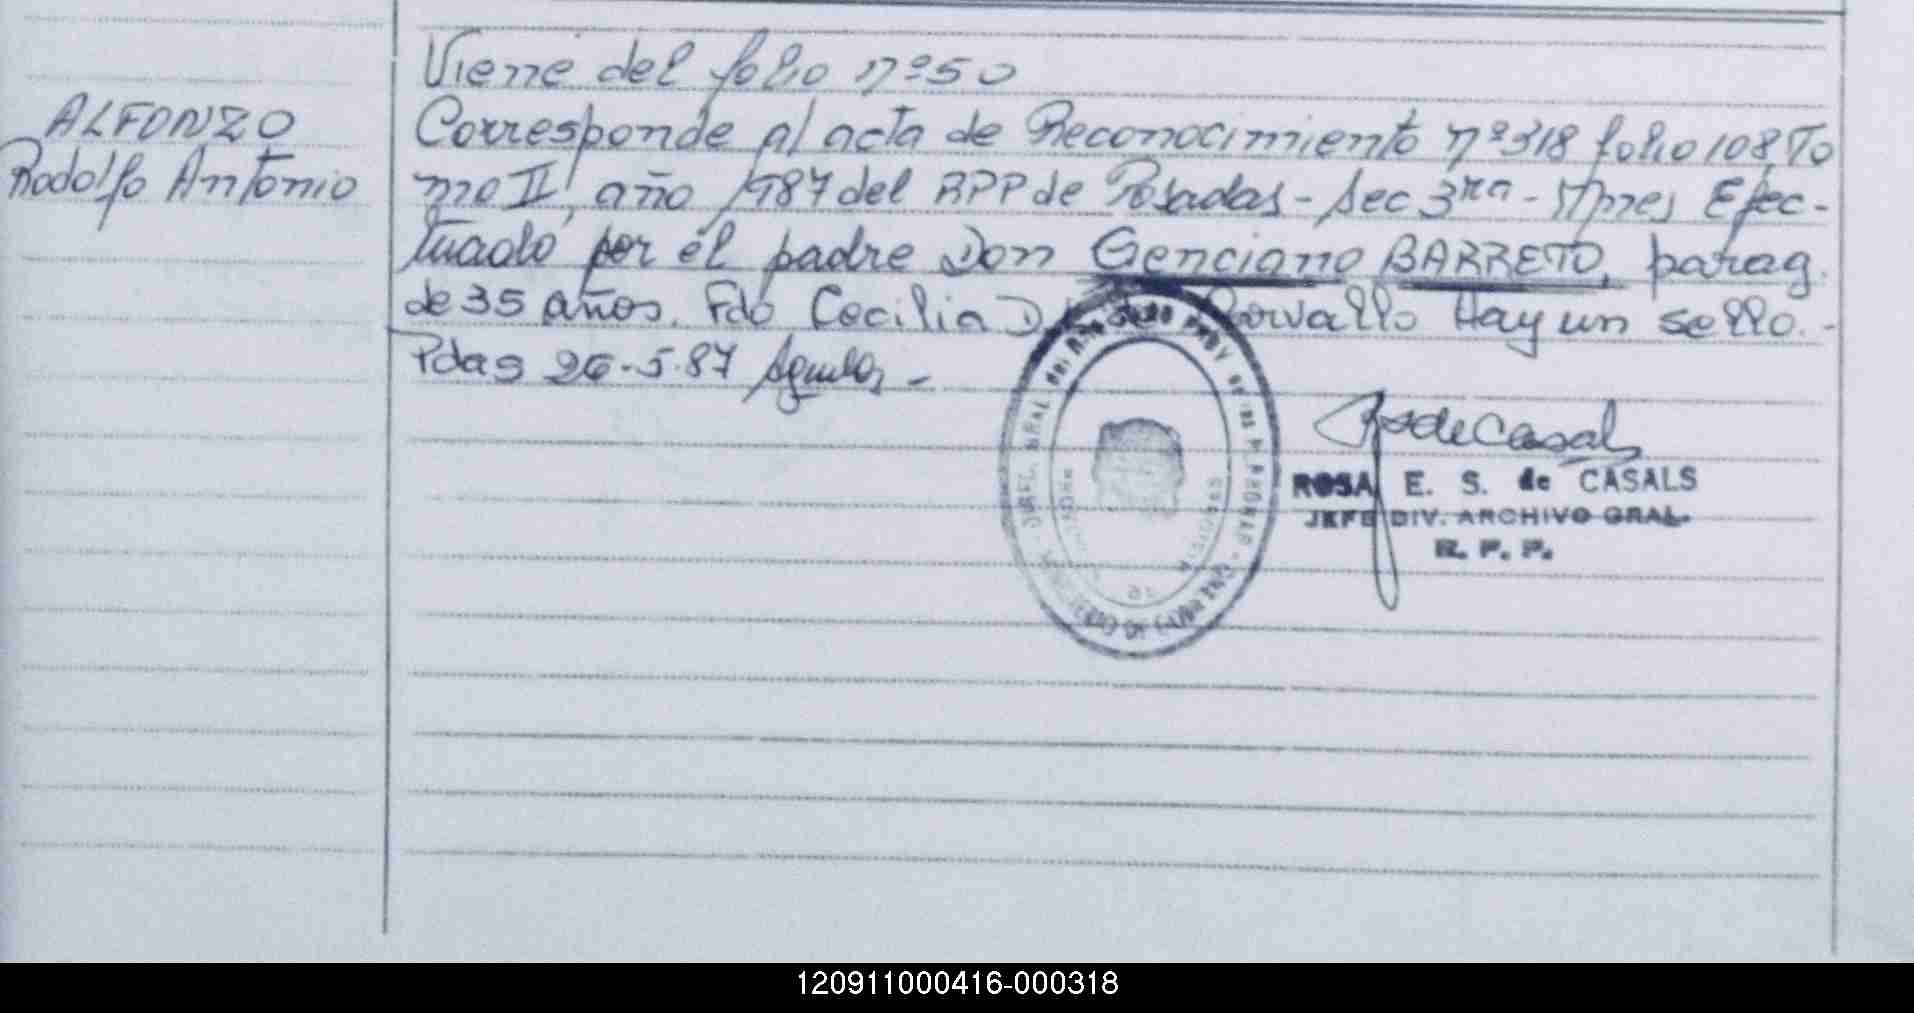 Viene del folio nº 50
ALFONZO
Rodolfo Antonio
Corresponde al acta de Reconocimiento nº 318 folio 108, To
mo II, año 1987 del RPP de Posadas - Sec 3ra - Mnes Efec-
tuado por el padre Don Genciano BARRETO, parag.
de 35 años. Fdo Cecilia D. Carvallo Hay un sello.-
Pdas 26-5-87 Aguilar -
RosdeCasals
ROSA E. S. de CASALS
JEFE DIV. ARCHIVO GRAL.
R. P. P.
120911000416-000318